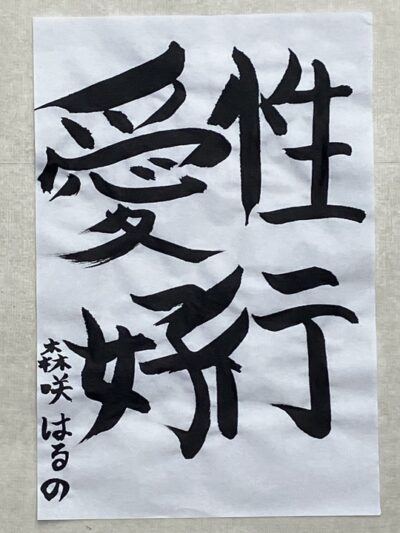 性行
愛好
森咲はるの